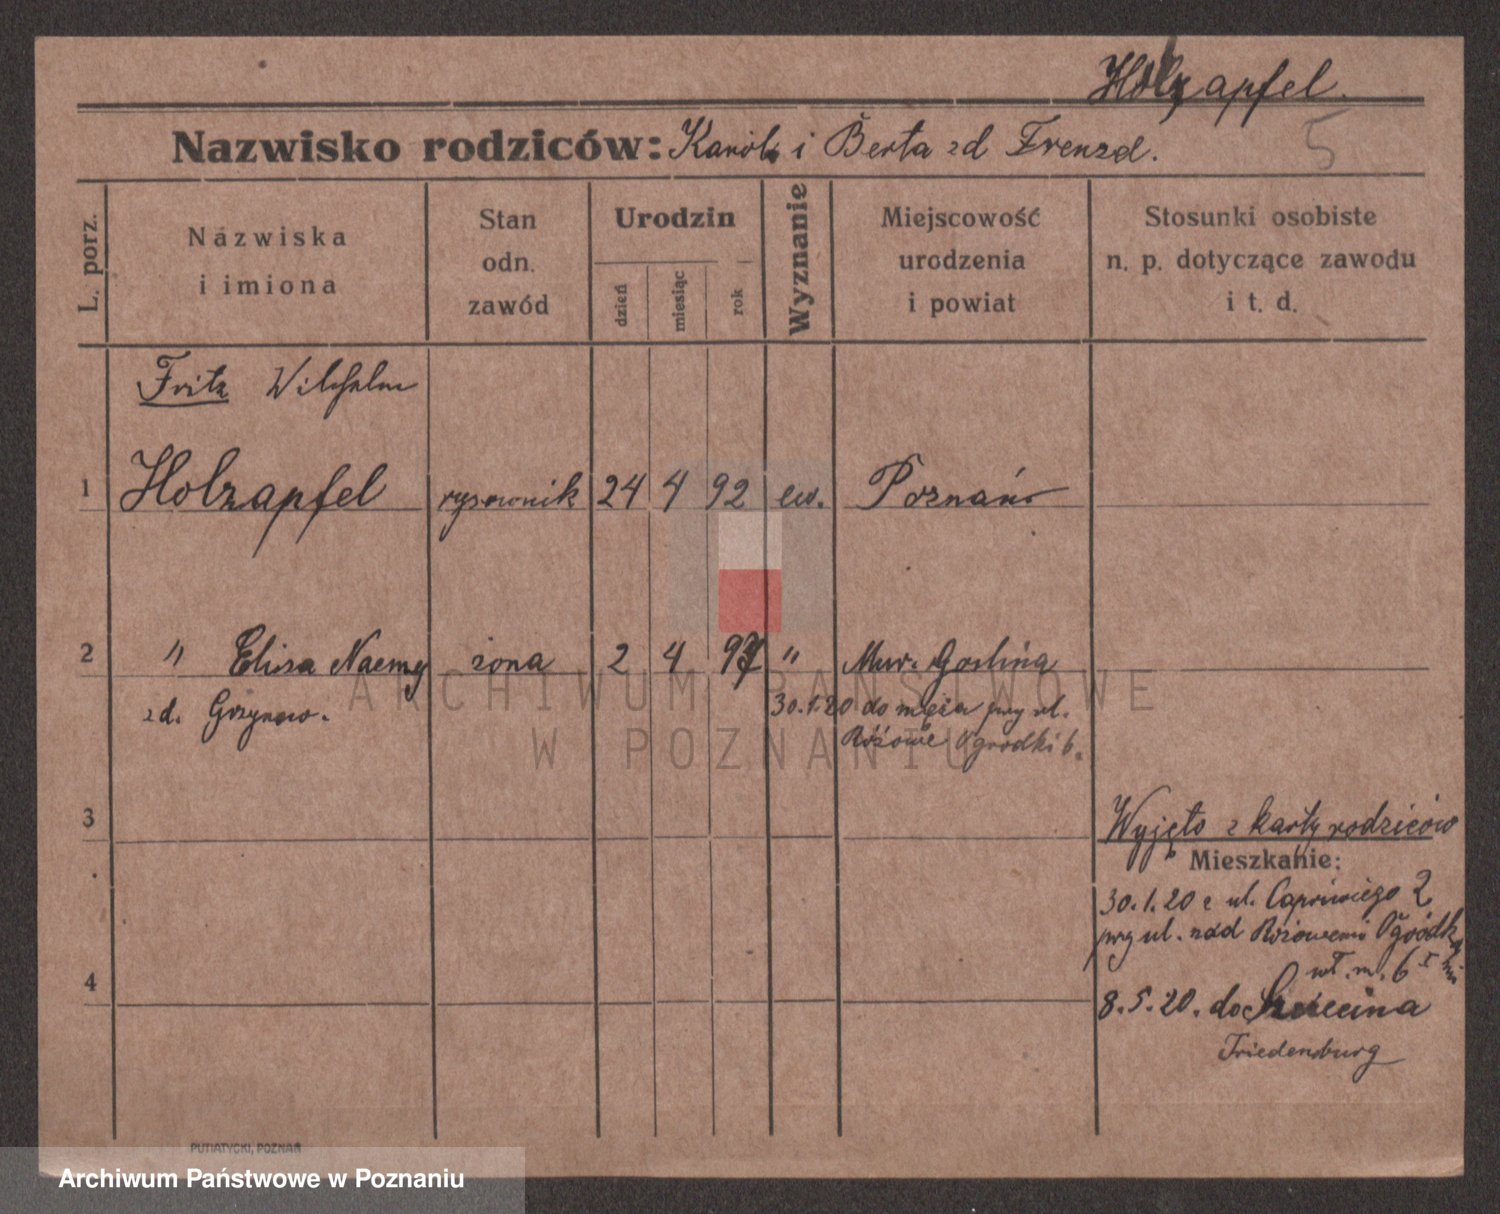 Holzapfel.
Nazwisko rodziców: Karol i Berta zd Frenzel.
5
L. porz.
Nazwiska
i imiona
Stan
odn.
zawód
Urodzin
dzień
miesiąc
rok
Wyznanie
Miejscowość
urodzenia
i powiat
Stosunki osobiste
n. p. dotyczące zawodu
i t. d.
Fritz Wilhelm
1 Holzapfel rysownik 24 4 92 ew. Poznań
2 " Elisa Naemy żona 2 4 97 " Mur. Goślina
zd. 30.1.20 do męża przy ul.
Różowe Ogródki 6.
3
Wyjęto z karty rodziców
Mieszkanie:
30.1.20 z ul. Capriviego 2
przy ul. nad Różowemi Ogródkami
m. 6
4
8.5.20. do Szczecina
Friedensburg
PUTIATYCKI, POZNAŃ
ARCHIWUM PAŃSTWOWE
W POZNANIU
Archiwum Państwowe w Poznaniu